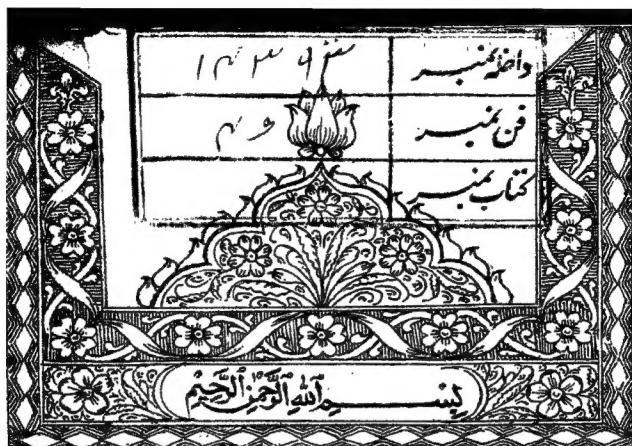 داخلہ نمبر
فن نمبر
کتاب نمبر
بسم الله الرحمن الرحيم